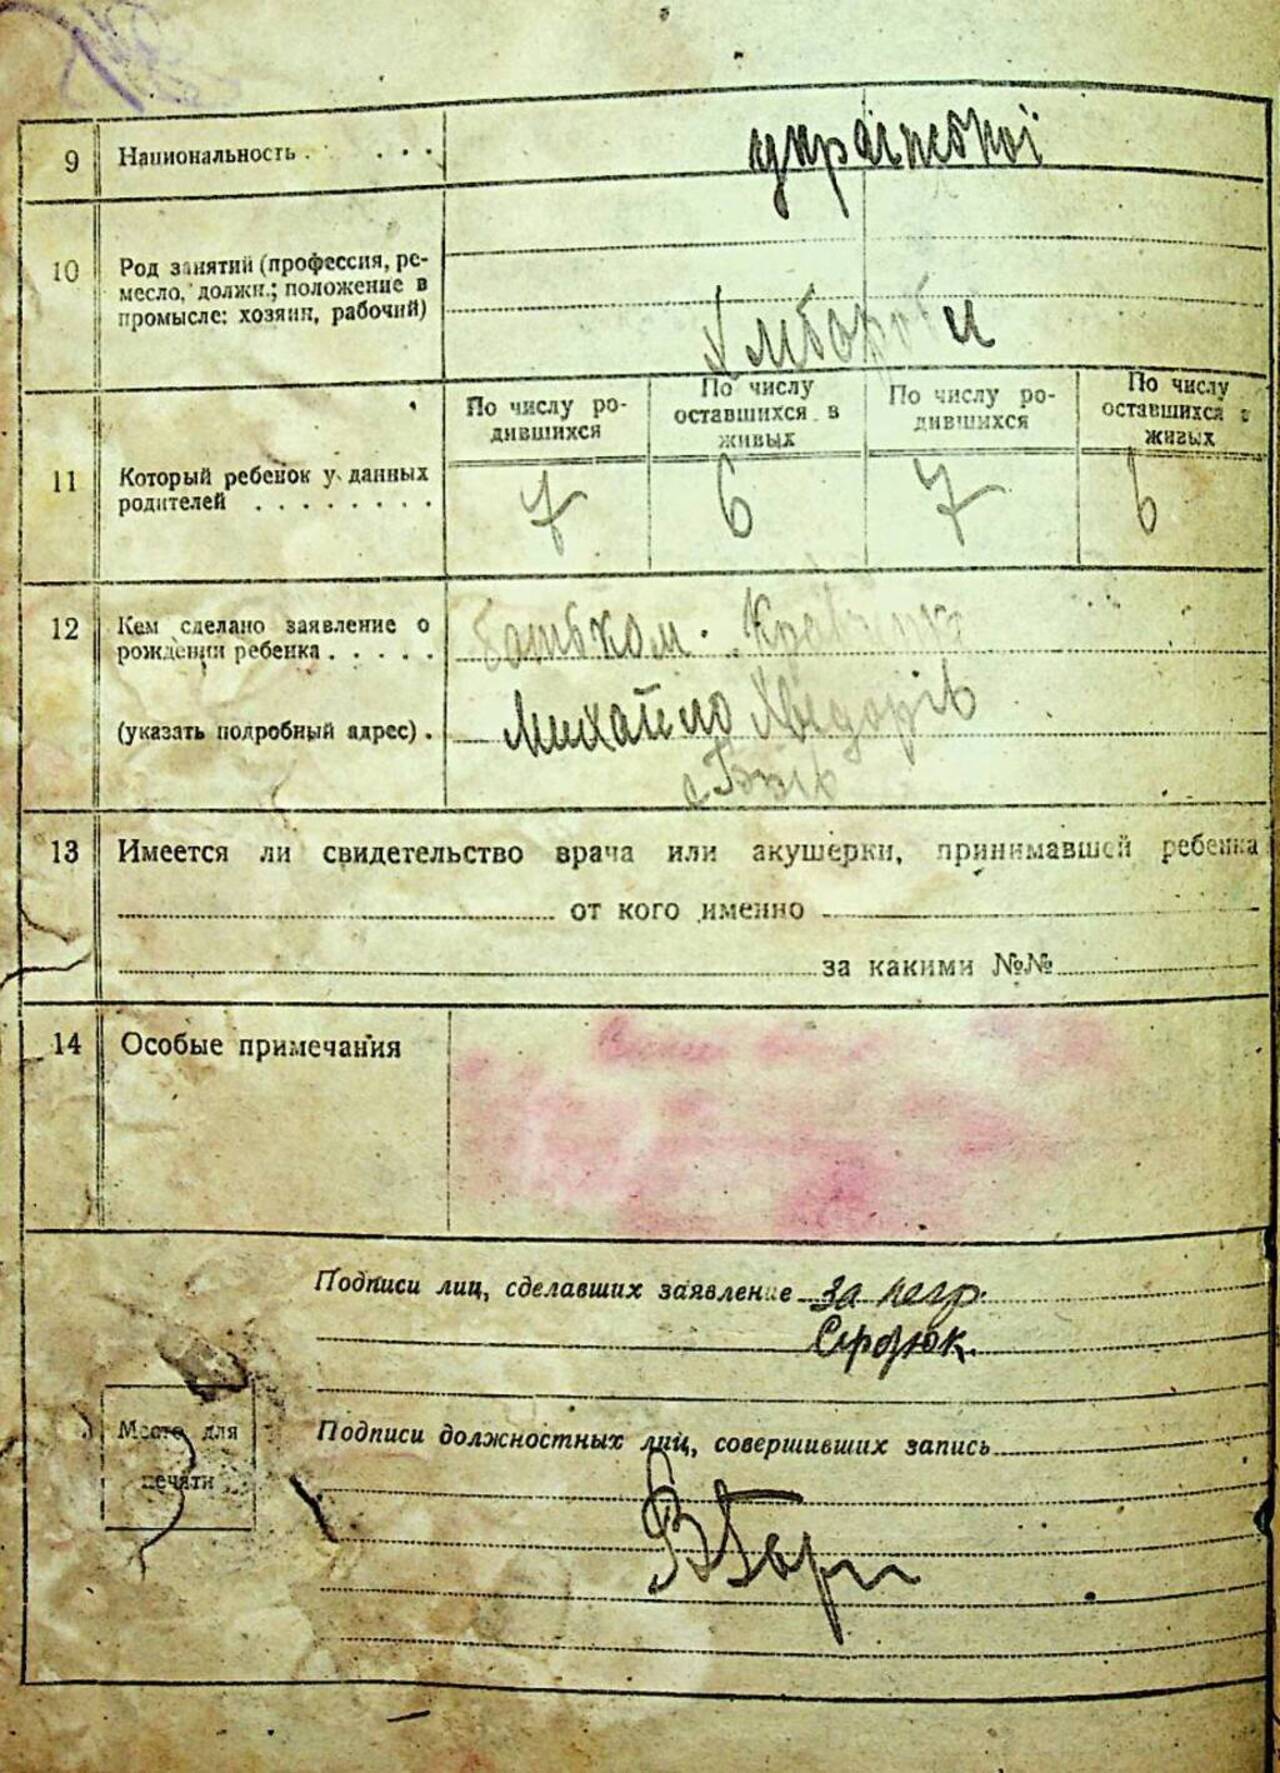 9 Национальность . . . . української
10 Род занятий (профессия, ре-
месло, должн.; положение в
промысле: хозяин, рабочий)
Хлібороби
По числу ро-
дившихся
По числу
оставшихся в
живых
По числу ро-
дившихся
По числу
оставшихся в
живых
11 Который ребенок у данных
родителей . . . . . . . .
7 6 7 6
12 Кем сделано заявление о
рождении ребенка . . . . .
батьком
(указать подробный адрес) .
Михайло Хведорів
с
13 Имеется ли свидетельство врача или акушерки, принимавшей ребенка
от кого именно
за какими №№
14 Особые примечания
Подписи лиц, сделавших заявление за негр.
Сердюк.
Место для
печати
Подписи должностных лиц, совершивших запись